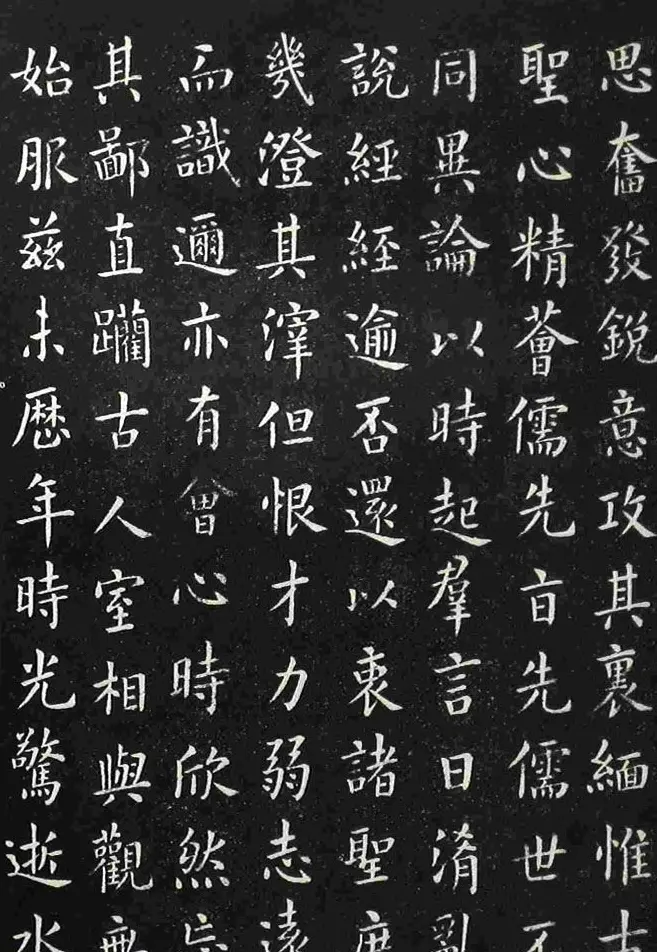 思奮發銳意攻其裏緬惟
聖心精薈儒先㫖先儒世
同異論以時起羣言日淆
說經經逾否還以衷諸聖
幾澄其滓但恨才力弱志
而識邇亦有會心時欣然
其鄙直躪古人室相與觀
始服茲未歷年時光驚逝